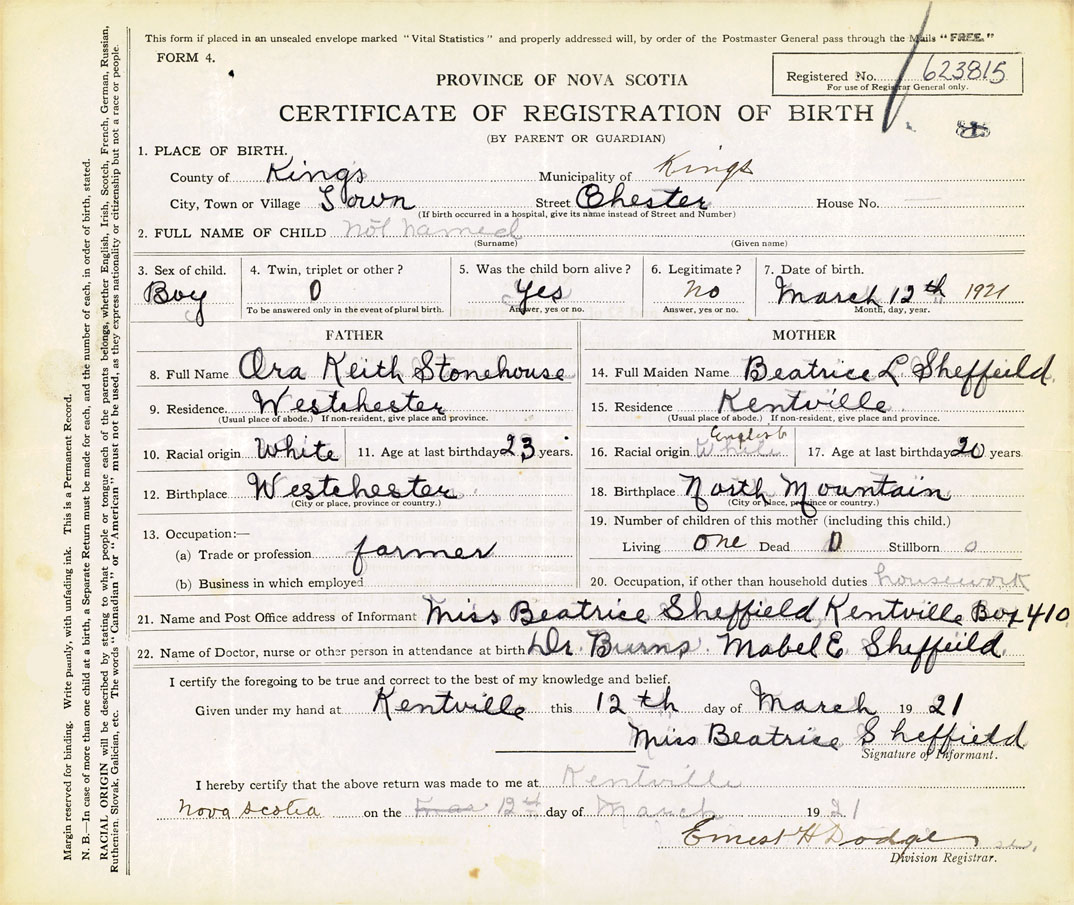 This form if placed in an unsealed envelope marked "Vital Statistics" and properly addressed will, by order of the Postmaster General pass through the Mails "FREE."
FORM 4.
Registered No. 623815
For use of Registrar General only.
PROVINCE OF NOVA SCOTIA
CERTIFICATE OF REGISTRATION OF BIRTH
(BY PARENT OR GUARDIAN)
1. PLACE OF BIRTH.
County of Kings Municipality of Kings
City, Town or Village Town Street Chester House No.
(If birth occurred in a hospital, give its name instead of Street and Number)
2. FULL NAME OF CHILD not named
(Surname) (Given name)
3. Sex of child. 4. Twin, triplet or other? 5. Was the child born alive? 6. Legitimate? 7. Date of birth.
Boy 0 Yes no March 12th 1921
To be answered only in the event of plural birth. Answer, yes or no. Answer, yes or no. Month, day, year.
FATHER MOTHER
8. Full Name Ora Keith Stonehouse 14. Full Maiden Name Beatrice L Sheffeild
9. Residence. Westchester 15. Residence Kentville
(Usual place of abode.) If non-resident, give place and province. (Usual place of abode.) If non-resident, give place and province.
English
10. Racial origin White 11. Age at last birthday 23 years. 16. Racial origin White 17. Age at last birthday 20 years
12. Birthplace Westchester 18. Birthplace North Mountain
(City or place, province or country.) (City or place, province or country.)
13. Occupation:— 19. Number of children of this mother (including this child.)
(a) Trade or profession farmer Living one Dead 0 Stillborn 0
(b) Business in which employed 20. Occupation, if other than household duties housework
21. Name and Post Office address of Informant Miss Beatrice Sheffield Kentville Box 410
22. Name of Doctor, nurse or other person in attendance at birth Dr. Burns. Mabel E Sheffeild.
I certify the foregoing to be true and correct to the best of my knowledge and belief.
Given under my hand at Kentville this 12th day of March 1921
Miss Beatrice Sheffield
Signature of Informant.
I hereby certify that the above return was made to me at Kentville
Nova Scotia on the 12th day of March 1921
Ernest H Dodge
Division Registrar.
Margin reserved for binding. Write plainly, with unfading ink. This is a Permanent Record.
N. B.—In case of more than one child at a birth, a Separate Return must be made for each, and the number of each, in order of birth, stated.
RACIAL ORIGIN will be described by stating to what people or tongue each of the parents belongs, whether English, Irish, Scotch, French, German, Russian,
Ruthenien, Slovak, Galician, etc. The words "Canadian" or "American" must not be used, as they express nationality or citizenship but not a race or people.